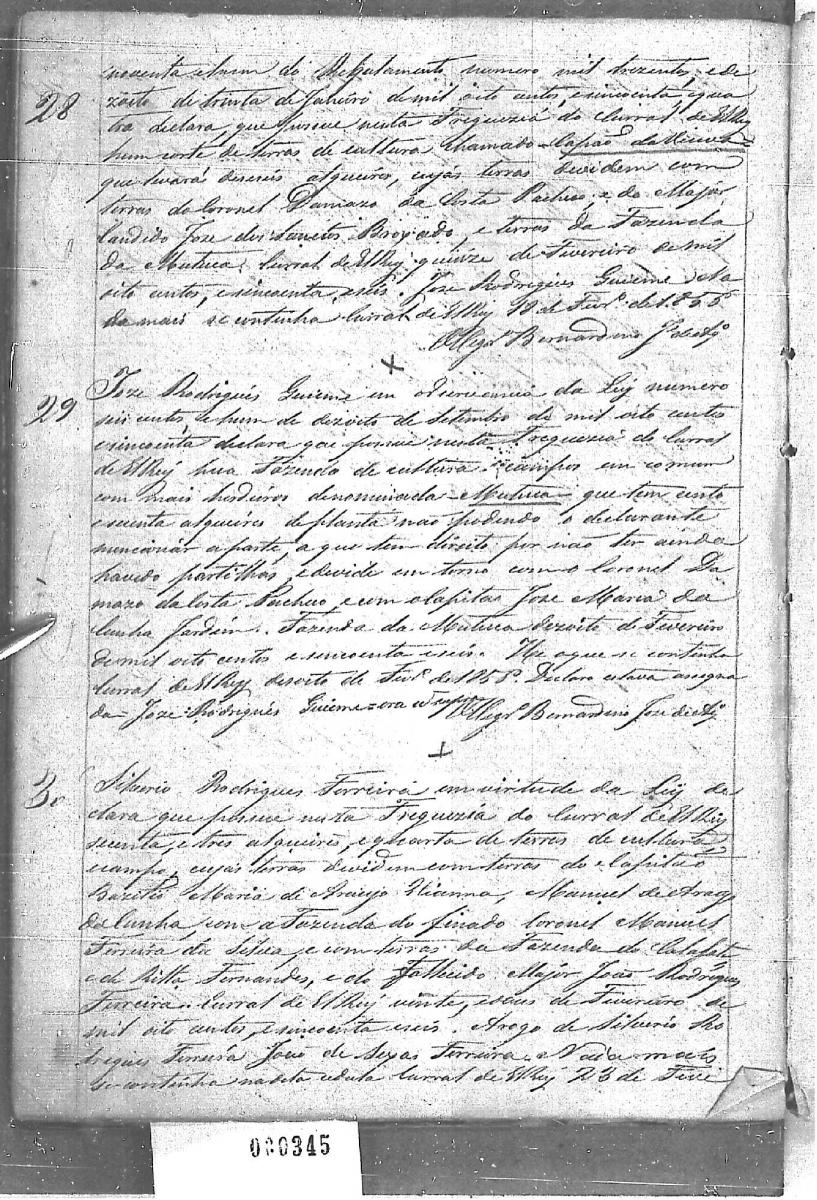 noventa e hum do Regulamento numero mil trezentos, e de
28
zoito de trinta de Janeiro de mil oito centos, e sincoenta e qua
tro declara, que possue nesta Freguezia do Curral de El Rey
hum corte de terras de cultura chamado = Capão da Viuva =
que levará deseseis alqueires, cujas terras devidem com
terras do Coronel Damazo da Costa Pacheco, e do Major
Candido Joze dos Sanctos Brochado, e terras da Fazenda
da Mutuca. Curral de El Rey quinze de Fevereiro de mil
oito centos, e sincoenta, e seis. Joze Rodrigues Na
da mais se continha Curral de El Rey 18 de Fevr.º de
Bernardino J.e de
29
Joze Rodrigues em observancia da Ley numero
seis centos, e hum de dezoito de Setembro de mil oito centos
e sincoenta declara que possue nesta Freguezia do Curral
de El Rey hua Fazenda de cultura e campos em comum
com mais herdeiros denominada = Mutuca = que tem cento
e secenta alqueires de planta não podendo o declarante
mencionar a parte, a que tem direito por não ter ainda
havido partilhas, e devide em torno com o Coronel Da
mazo da Costa Pacheco, e com o Capitão Joze Maria da
Cunha Jardim. Fazenda da Mutuca dezoito de Fevereiro
de mil oito centos e sincoenta e seis. He o que se continha
Curral de El Rey desoito de Fevr.º de Declaro estava assegna
da = Joze Rodrigues Bernardino Joze de
30
Silverio Rodrigues Ferreira em virtude da Ley de
clara que possue nesta Freguezia do Curral de El Rey
secenta, e tres alqueires, e quarta de terras de cultura
e campo, cujas terras devidem com terras do Capitão
Maria de Araujo Vianna, Manuel de
da Cunha, com a Fazenda do finado Coronel Manuel
Ferreira da Silva, e com terras da Fazenda do Calafate
e de Ritta Fernandes, e do Fallecido Major João Rodrigues
Ferreira. Curral de El Rey vinte, e seis de Fevereiro de
mil oito centos, e sincoenta e seis. Arogo de Silverio Ro
drigues Ferreira de Ferreira. Nada mais
se continha na dita cedula Curral de El Rey 23 de Feve
000345